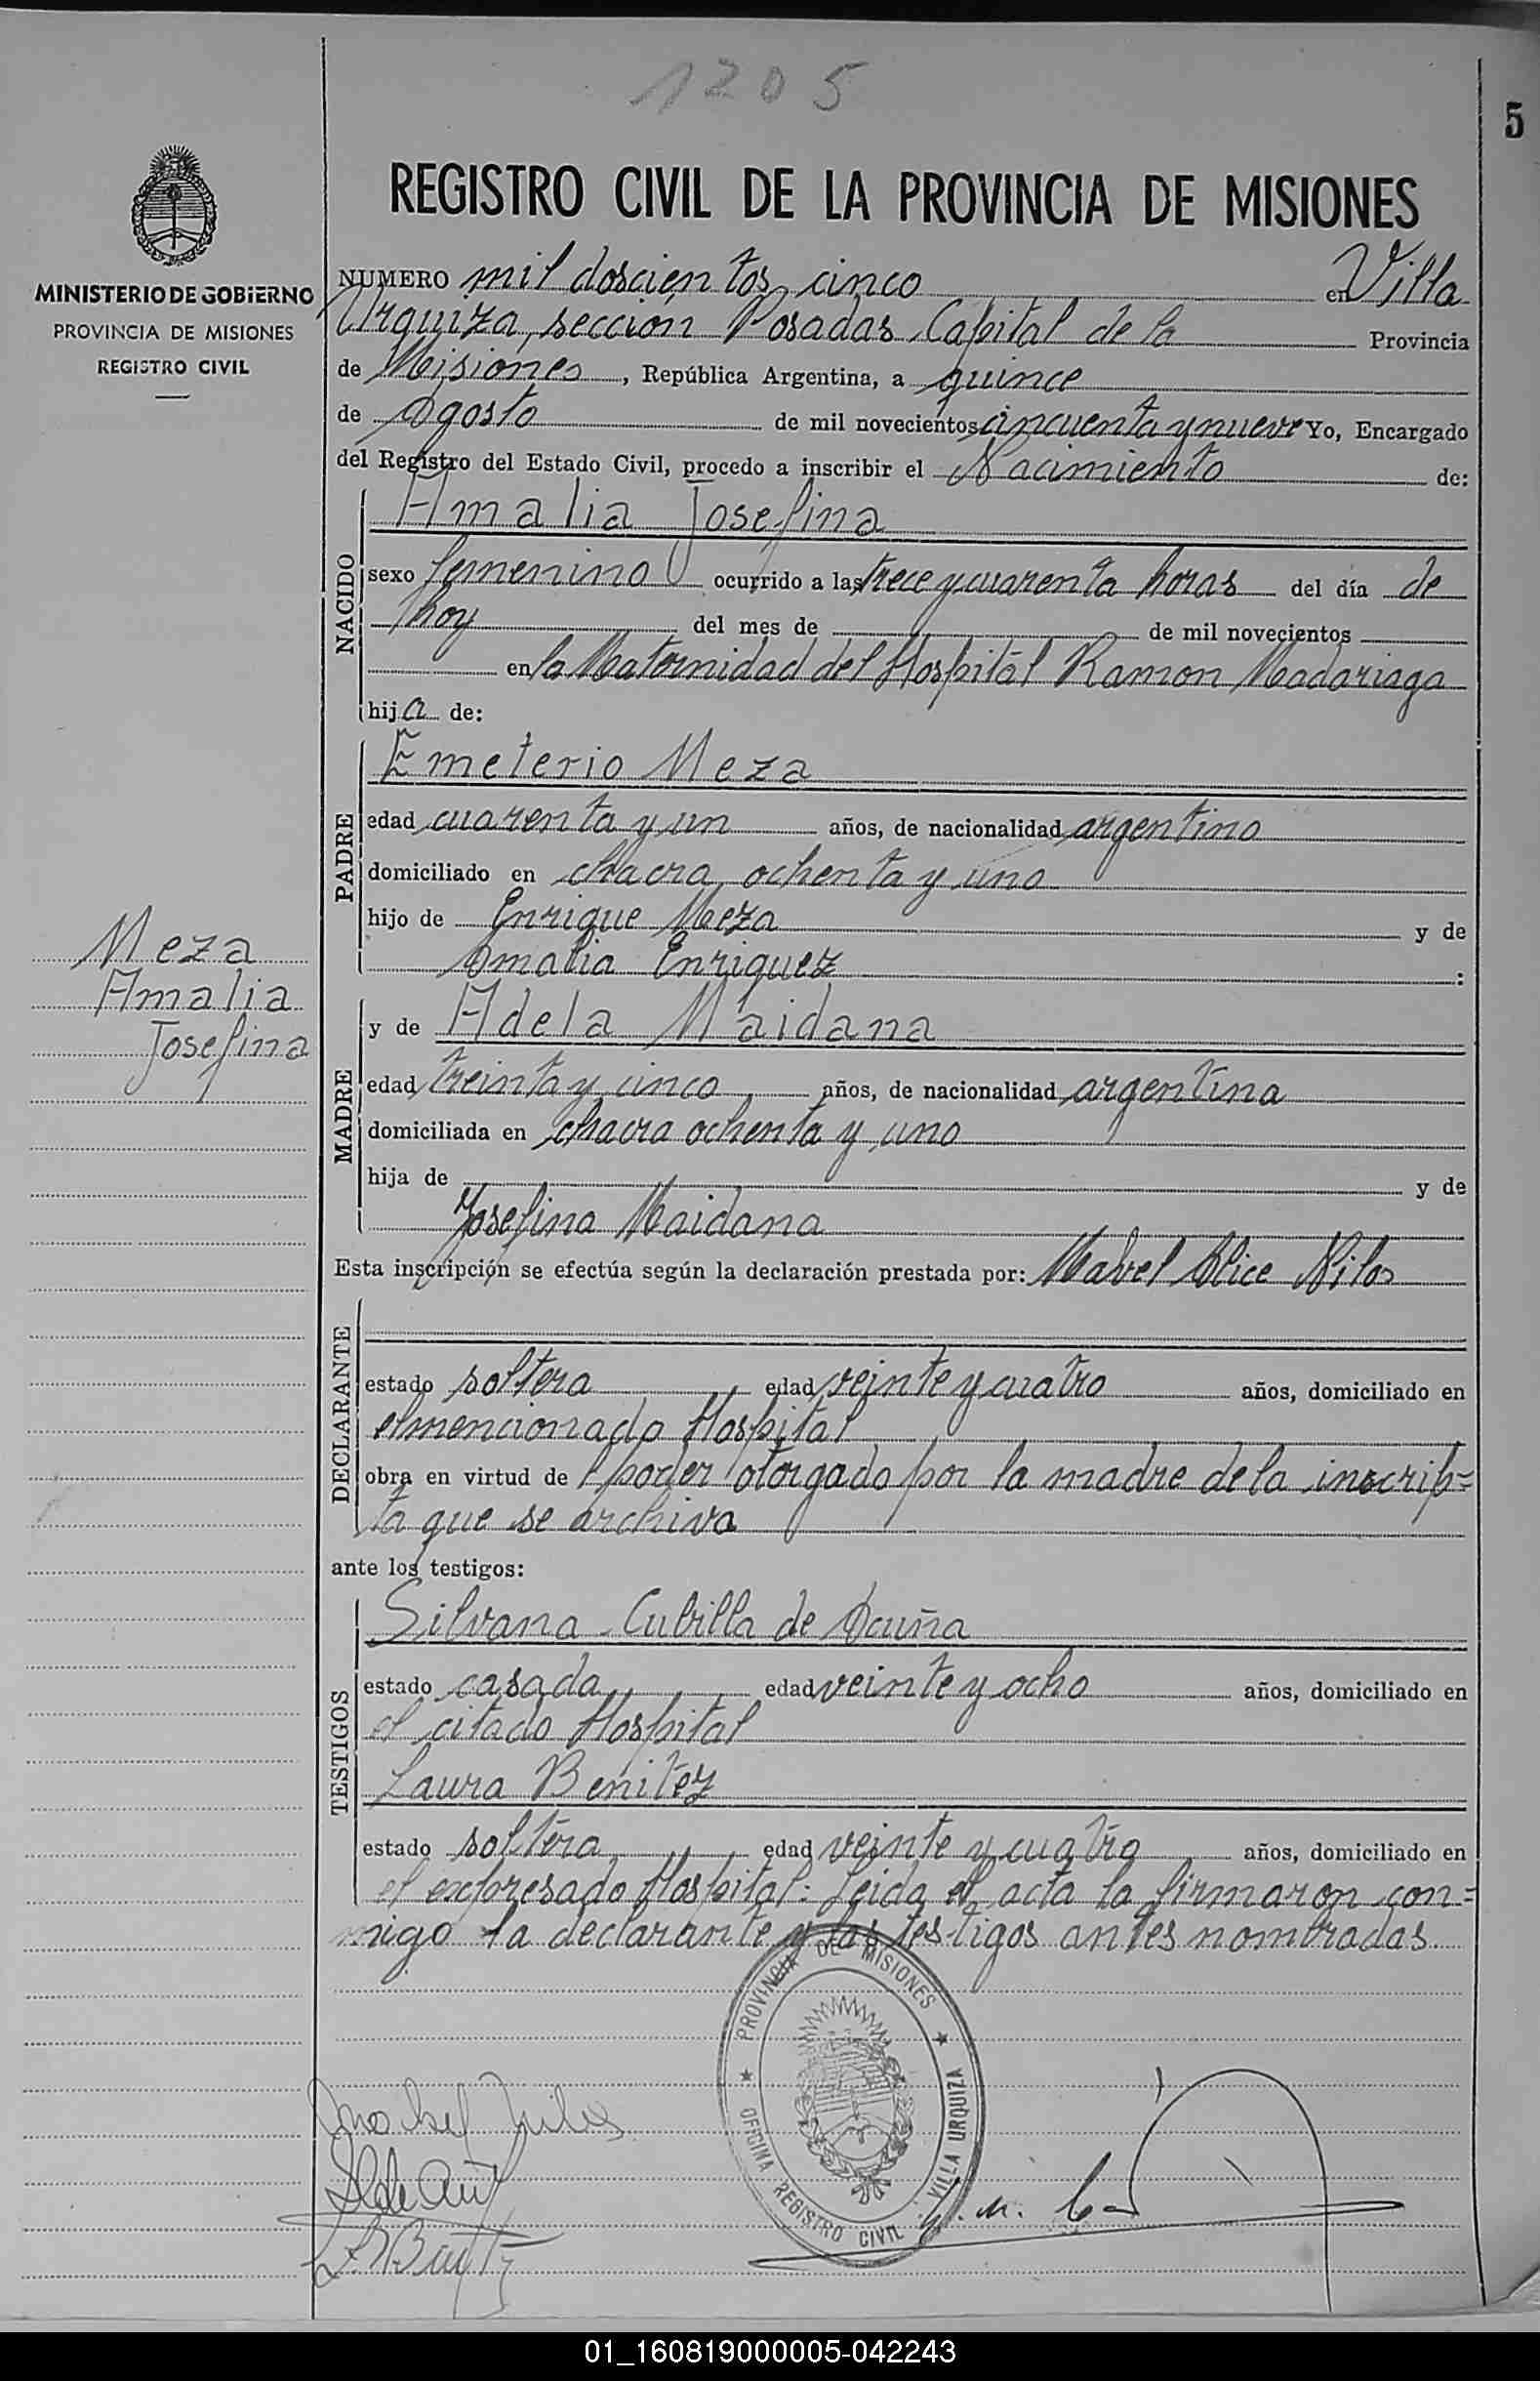 1205
5
REGISTRO CIVIL DE LA PROVINCIA DE MISIONES
MINISTERIO DE GOBIERNO
PROVINCIA DE MISIONES
REGISTRO CIVIL
NUMERO mil doscientos cinco en Villa
Urquiza, sección Posadas Capital de la Provincia
de Misiones, República Argentina, a quince
de Agosto de mil novecientos cincuenta y nueve Yo, Encargado
del Registro del Estado Civil, procedo a inscribir el Nacimiento de:
NACIDO
Amalia Josefina
sexo femenino ocurrido a las trece y cuarenta horas del día de
hoy del mes de de mil novecientos
en la Maternidad del Hospital Ramon Madariaga
hija de:
PADRE
Emeterio Meza
edad cuarenta y un años, de nacionalidad argentino
domiciliado en chacra ochenta y uno
hijo de Enrique Meza y de
Amalia Enriquez :
Meza
Amalia
Josefina
MADRE
y de Adela Maidana
edad treinta y cinco años, de nacionalidad argentina
domiciliada en chacra ochenta y uno
hija de y de
Josefina Maidana
Esta inscripción se efectúa según la declaración prestada por: Mabel Alice Nilos
DECLARANTE
estado soltera edad veinte y cuatro años, domiciliado en
el mencionado Hospital
obra en virtud de poder otorgado por la madre de la inscrip=
ta que se archiva
ante los testigos:
TESTIGOS
Silvana Cubilla de Acuña
estado casada edad veinte y ocho años, domiciliado en
el citado Hospital
Laura Benitez
estado soltera edad veinte y cuatro años, domiciliado en
el expresado Hospital. Leida el acta la firmaron con=
migo la declarante y las testigos antes nombradas
PROVINCIA DE MISIONES
OFICINA REGISTRO CIVIL VILLA URQUIZA
01_160819000005-042243